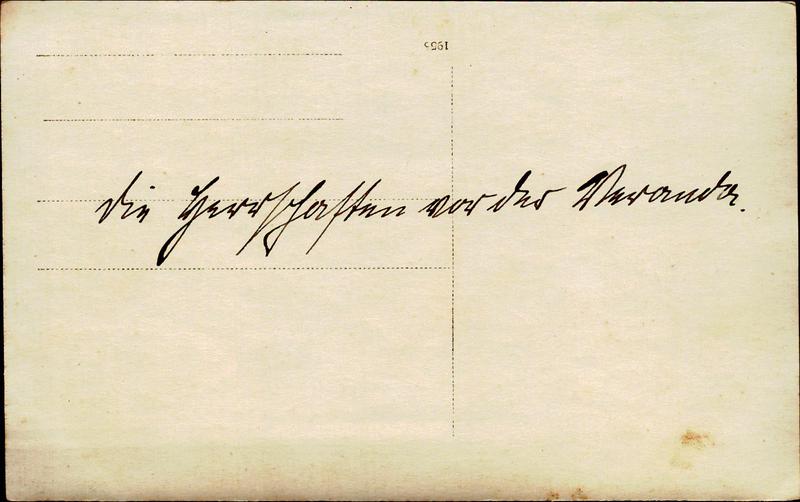 1955
die Herrschaften vor der Veranda.